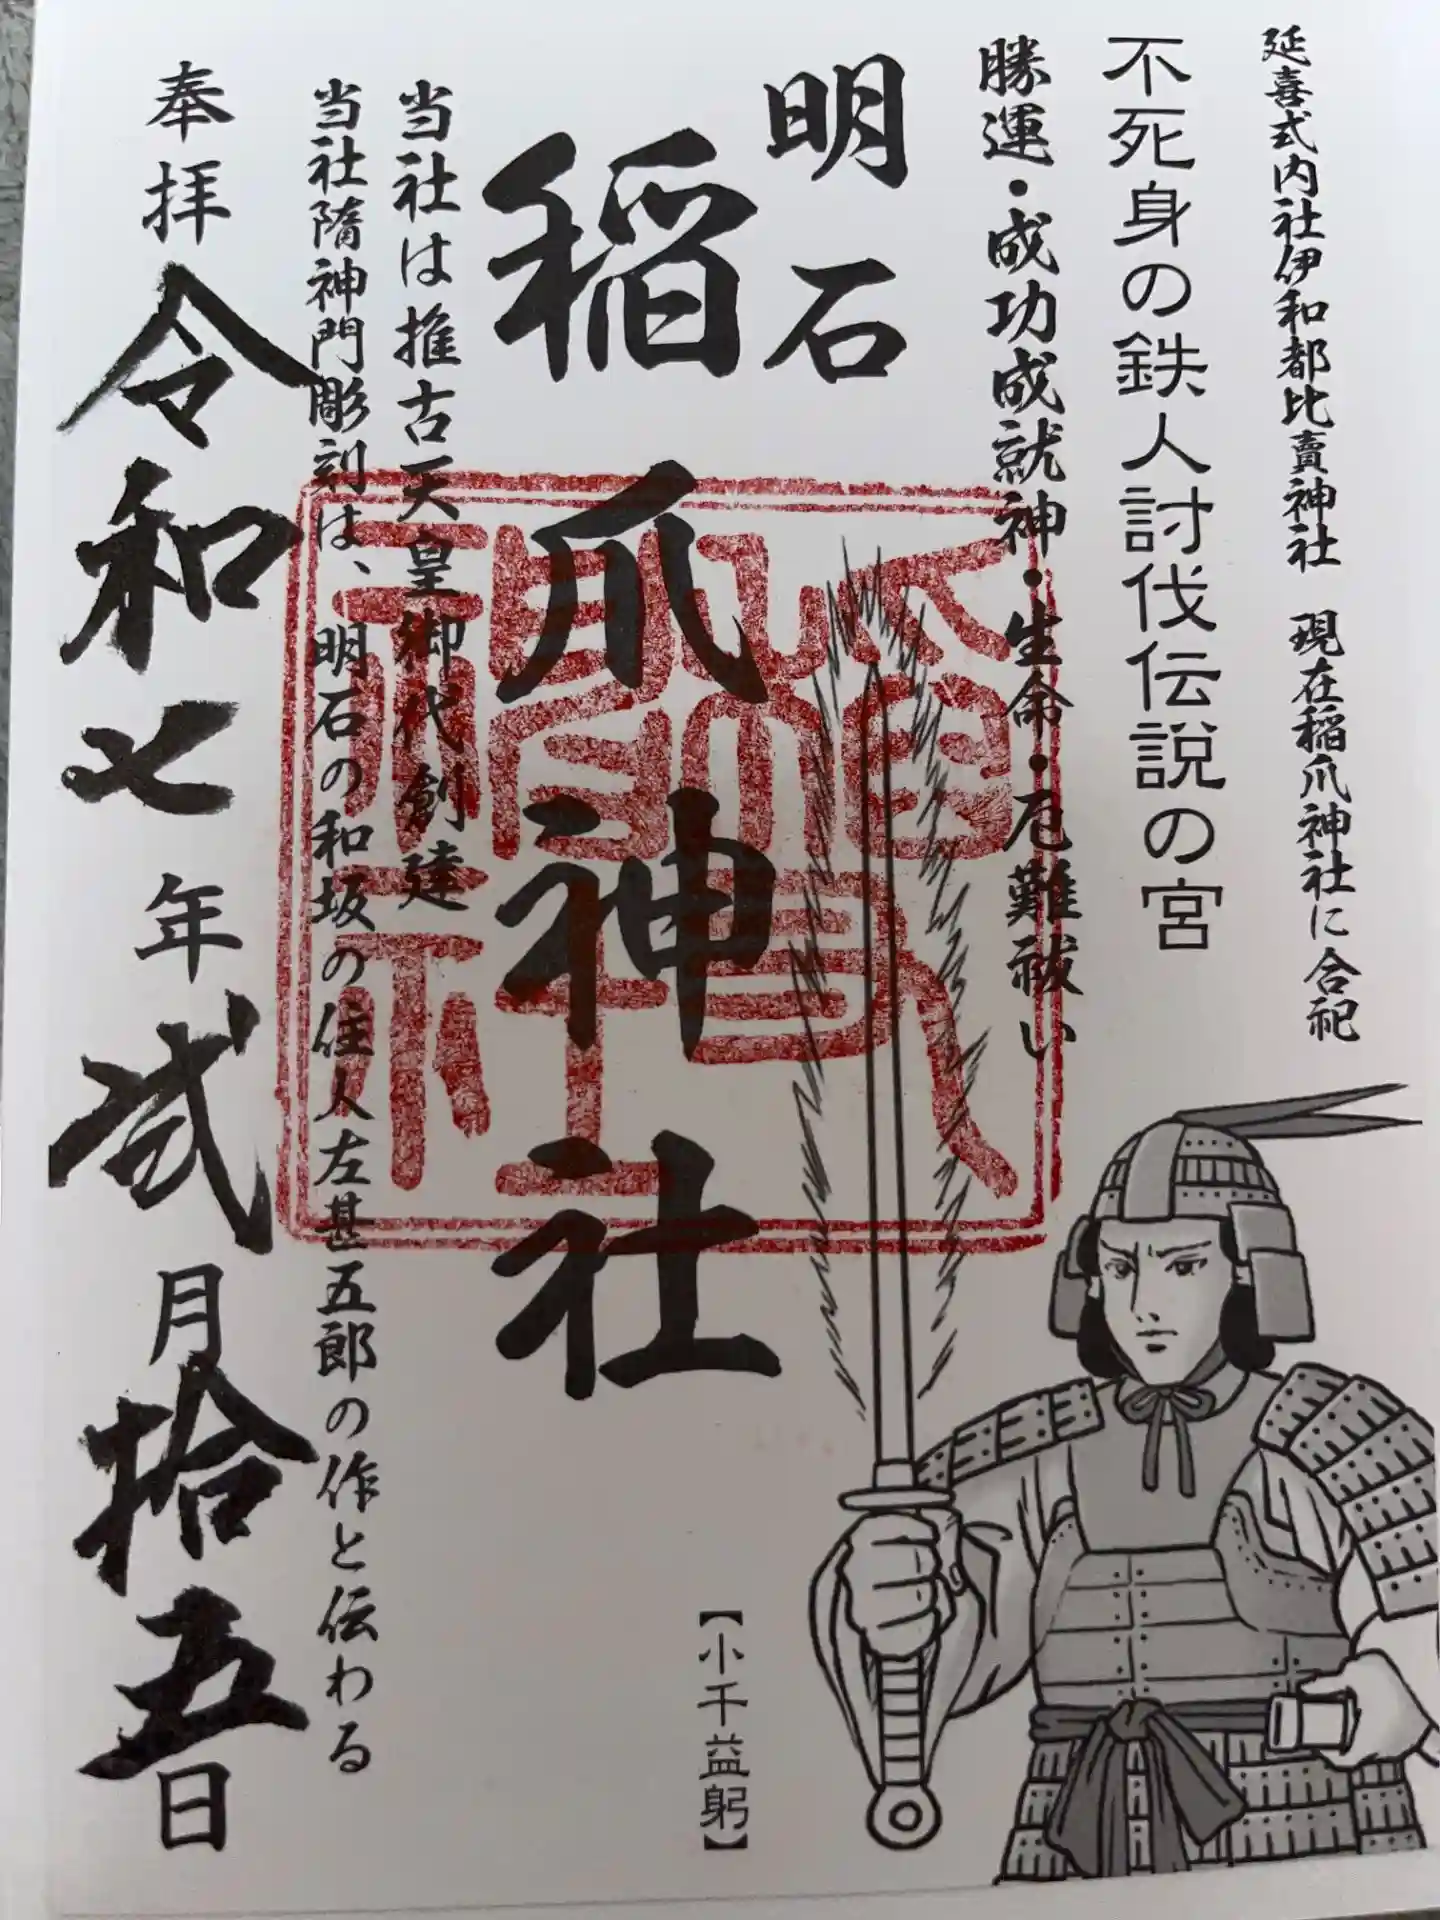 延喜式内社伊和都比賣神社 現在稲爪神社に合祀
不死身の鉄人討伐伝説の宮
勝運・成功成就神・生命・厄難祓い
明石
稲爪神社
【小千益躬】
当社は推古天皇御代創建
当社隋神門彫刻は、明石の和坂の住人左甚五郎の作と伝わる
奉拝 令和七年弐月拾五日